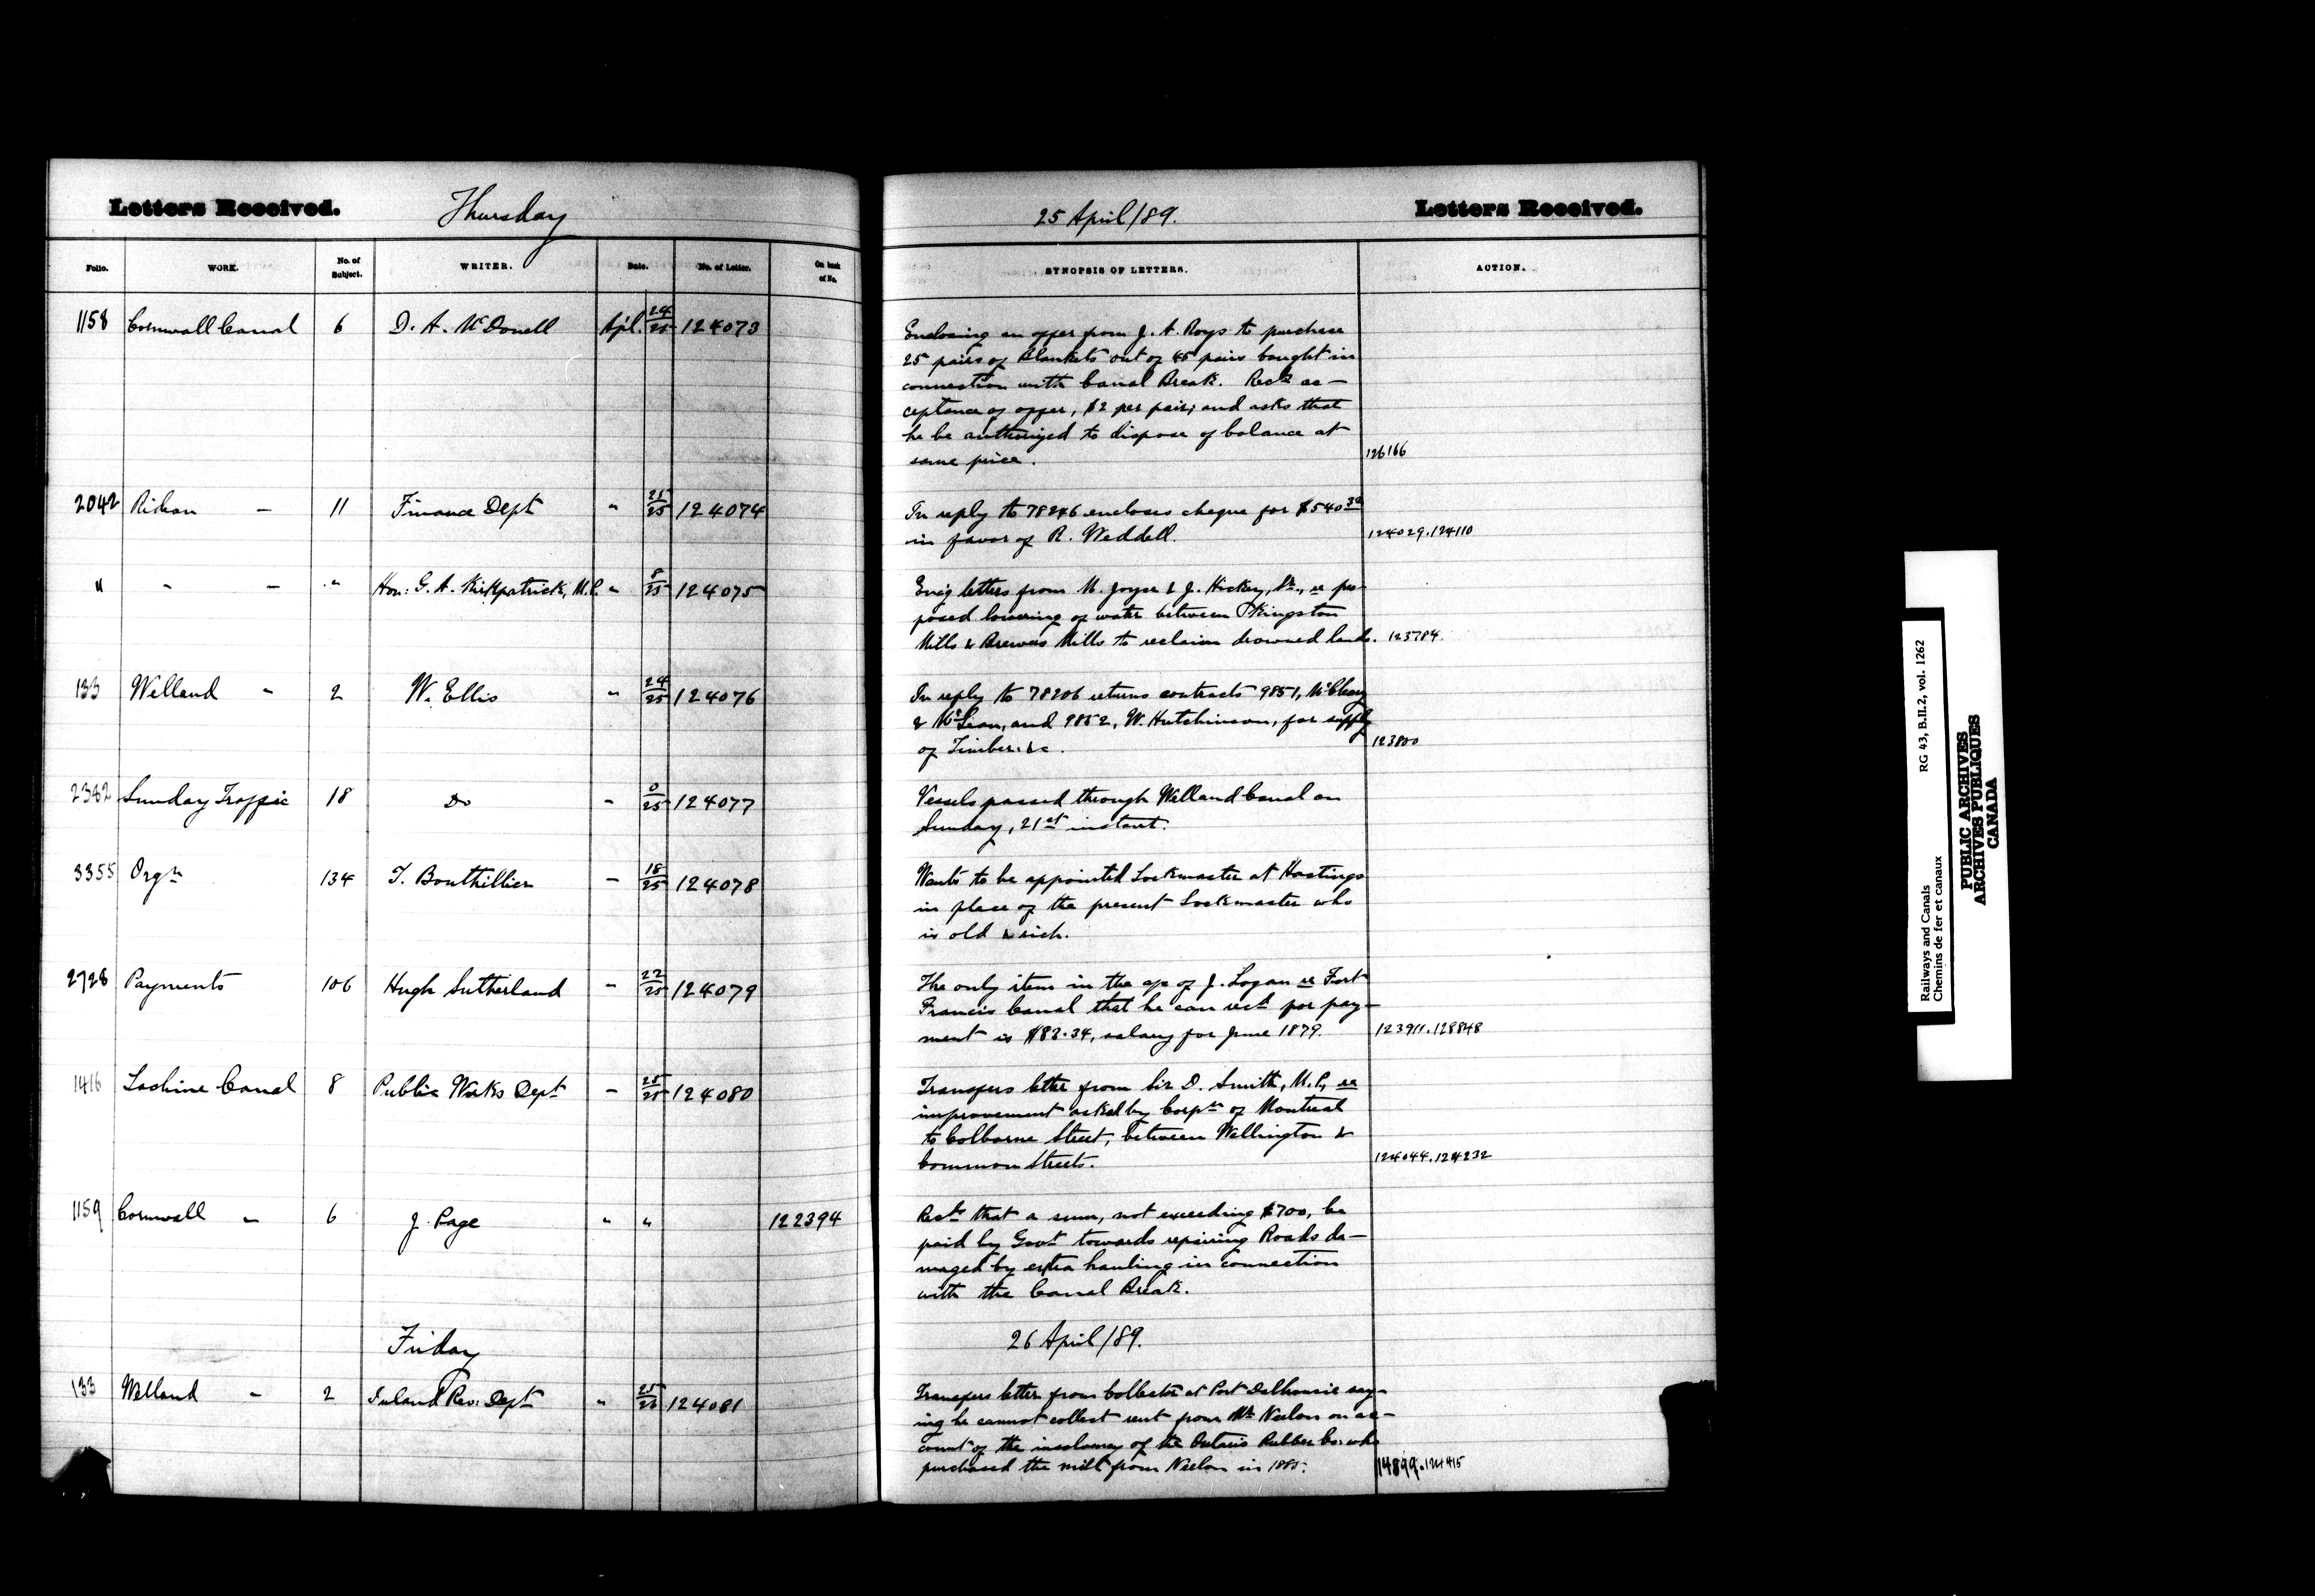 Letters Received. Thursday
25 April/89. Letters Received.
Folio. WORK. No. of Subject. WRITER. Date. No. of Letter. On back of No.
SYNOPSIS OF LETTERS. ACTION.
1158 Cornwall Canal 6 D. A. McDonell Apl. 24/25 124073
Enclosing an offer from J. A. Roys to purchase
25 pairs of Blankets out of 45 pairs bought in
connection with Canal Break. Recds ac-
ceptance of offer, $2 per pair; and asks that
he be authorized to dispose of balance at
same price. 126166
2042 Rideau - 11 Finance Dept " 25/25 124074
In reply to 78246 encloses cheque for $540
in favor of R. Weddell. 124029.124110
" - - " Hon: G. A. Kirkpatrick, M.P. " 8/25 124075
Encg letters from M. Joyce & J. Hickey, Sr., re pro-
posed lowering of water between Kingston
Mills & Brewers Mills to reclaim drowned lands. 123784
133 Welland " 2 W. Ellis " 24/25 124076
In reply to 78206 returns contracts 9851, McCleary
& McLean, and 9852, W. Hutchinson, for supply
of Timber &c. 123800
2382 Sunday Traffic 18 Do " 0/25 124077
Vessels passed through Welland Canal on
Sunday, 21st instant.
3355 Orgn 134 T. Bouthillier - 18/25 124078
Wants to be appointed Lockmaster at Hastings
in place of the present Lockmaster who
is old & sick.
2728 Payments 106 Hugh Sutherland - 22/25 124079
The only item in the a/c of J. Logan re Fort
Francis Canal that he can recd for pay-
ment is $83.34, salary for June 1879. 123911.128848
1416 Lachine Canal 8 Public Works Dept - 25/25 124080
Transfers letter from Sir D. Smith, M.P., re
improvement asked by Corpn of Montreal
to Colborne Street, between Wellington &
Common Streets. 124044.124232
1159 Cornwall " 6 J. Page " " 122394
Recds that a sum, not exceeding $700, be
paid by Govt towards repairing Roads da-
maged by extra hauling in connection
with the Canal Break.
Friday
26 April/89.
133 Welland " 2 Inland Rev: Dept " 25/26 124081
Transfers letter from Collector at Port Dalhousie say-
ing he cannot collect rent from Mr Neelon on ac-
count of the insolvency of the Ontario Rubber Co: who
purchased the mill from Neelon in 124415
Railways and Canals RG 43, B.II.2, vol. 1262
Chemins de fer et canaux
PUBLIC ARCHIVES
ARCHIVES PUBLIQUES
CANADA